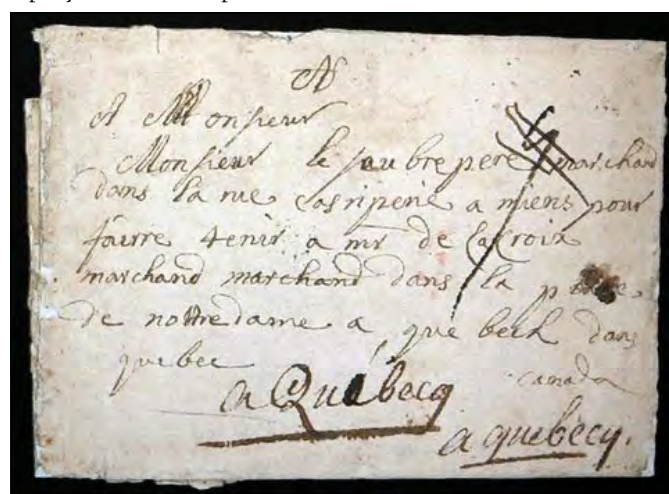 A
A Monsieur
Monsieur le jeu bre pere marchand
dans la rue a miens pour
fairre tenir a mr de la Croix
marchand marchand dans la
de nottre dame a que beck dans
quebec canada
a Québecq
a quebecq.